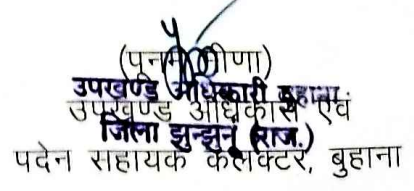 (पूनम मीणा)
उपखण्ड अधिकारी बुहाना
उपखण्ड अधिकारी एवं
जिला झुन्झुनू (राज.)
पदेन सहायक कलक्टर, बुहाना